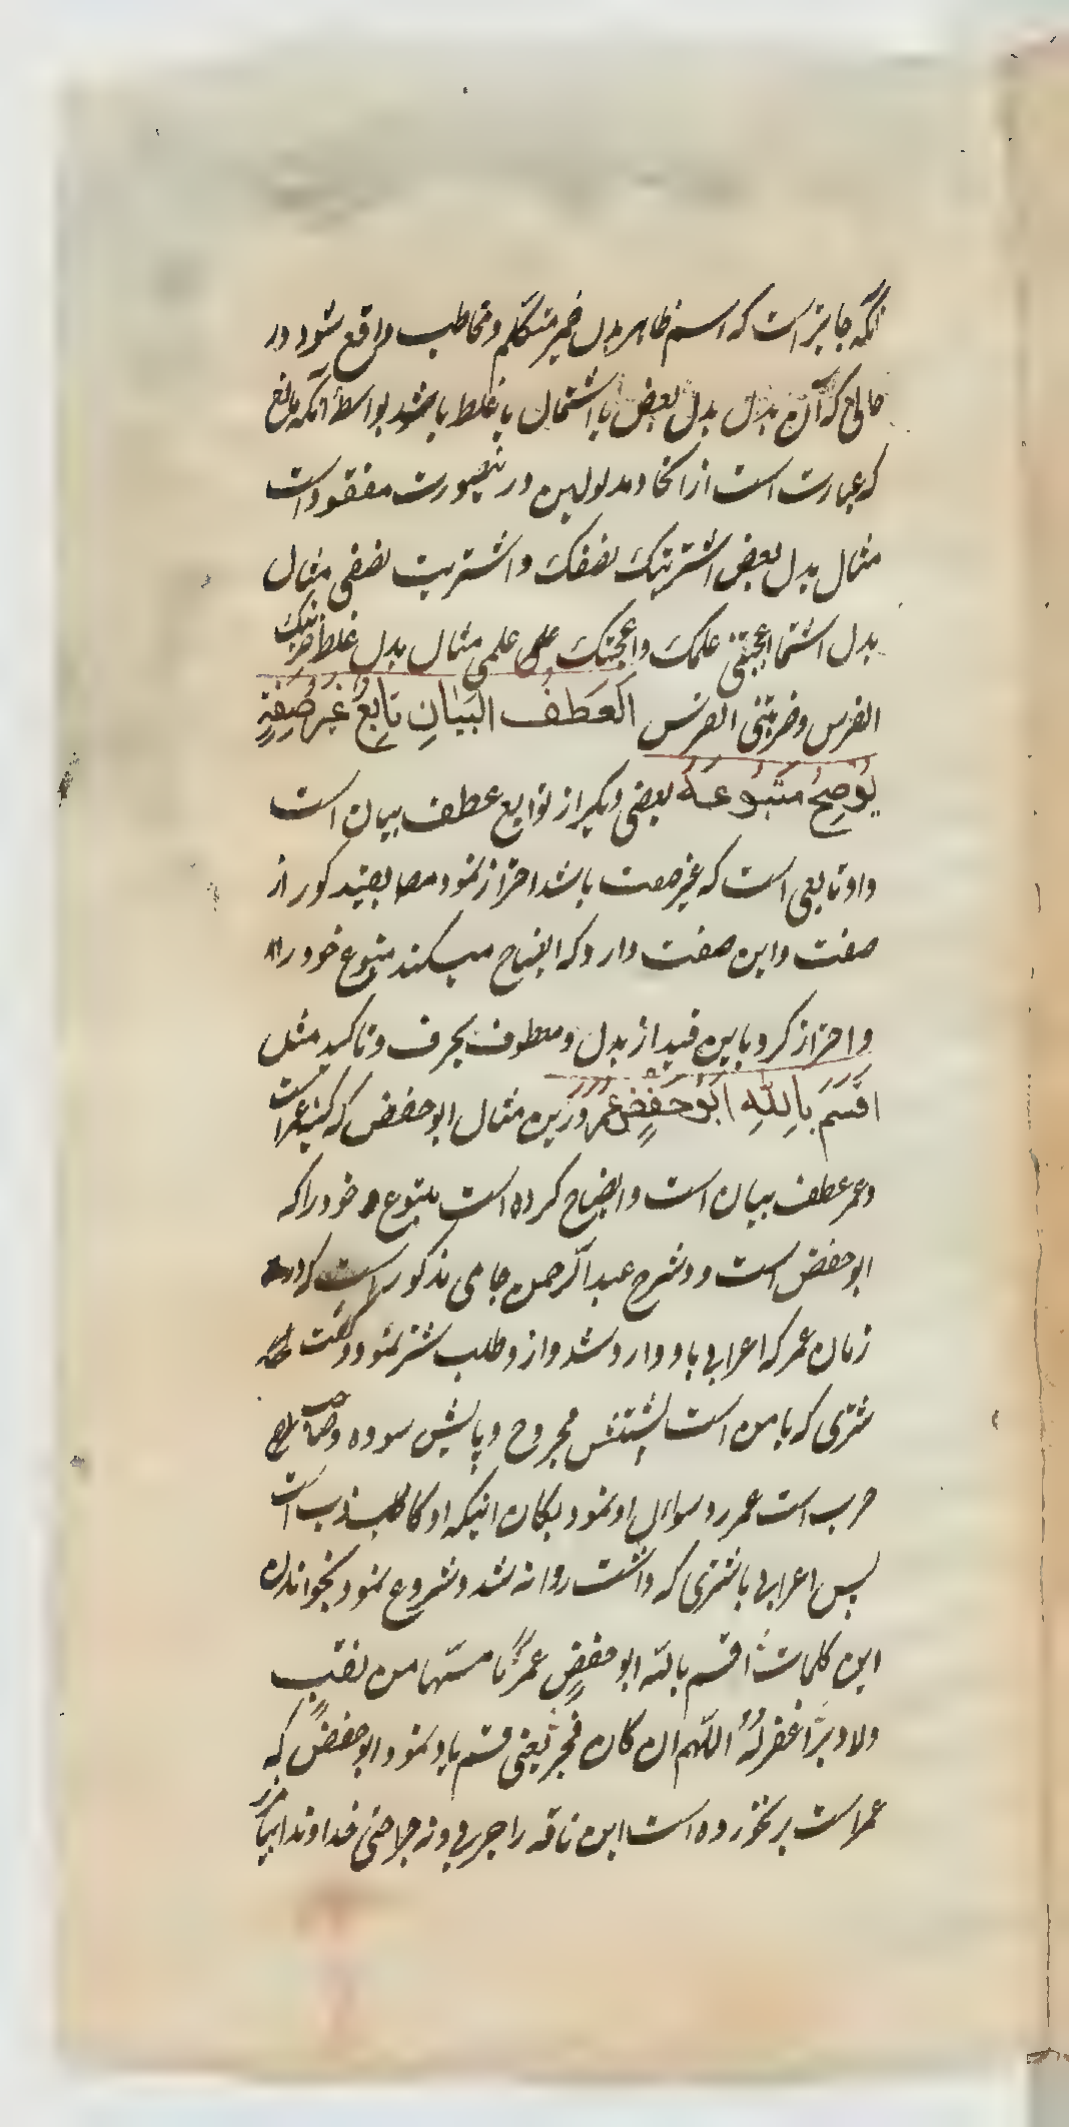 آنکه جایز است که اسم ظاهر بدل ضمیر متکلم و مخاطب واقع شود در
حالی که آن بدل بدل بعض یا اشتمال یا غلط باشد بواسطه آنکه مانع
که عبارت است از اتحاد مدلولین در نیصورت مفقود است
مثال بدل بعض اشتریتکَ نصفکَ و اشتریت نصفی مثال
بدل اشتما اعجبتنی علمکَ و اعجبتکَ علمی مثال بدل غلط ضربتکَ
الفرس و ضربتنی الفرس اَلعَطفُ البَیٰانِ تابِعٌ غَیرُ صِفَةٍ
یُوَضِحُ مَتبُوعَهُ بعضی دیگر از توابع عطف بیان است
و او تابعی است که غیر صفت باشد احتراز نمود مص بقید کور از
صفت و این صفت دارد که ایضاح میکند متبوع خود را
و احتراز کرد باین قید از بدل و معطوف بحرف و تاکید مثل
اَقسَمَ بِاللّٰهِ اَبُو حَفصٍ عُمَر درین مثال ابو حفص که کنیه عمر است
و عمر عطف بیان است و ایضاح کرده است متبوع خود را که
ابو حفص است و در شرح عبد الرّحمن جامی مذکور است که در
زمان عمر که اعرابی باو وارد شد و از و طلب شتر نمود و گفت
شتری که با من است پشتش مجروح و پایش سوده و صاحب
جرب است عمر رد سوال او نمود بکمان اینکه او کاذب است
پس اعرابی با شتری که داشت روانه شد و شروع نمود بخواندن
این کلمات اقسم بالله ابو حفصٍ عمرُ ما مسّها من نقبٍ
ولا دبر اغفر لهُ اللّهم ان کان فجر یعنی قسم یاد نمود ابو حفص که
عمر است بر نخورده است این ناقه را جربی و نه جراحتی خداوندا بیامرز